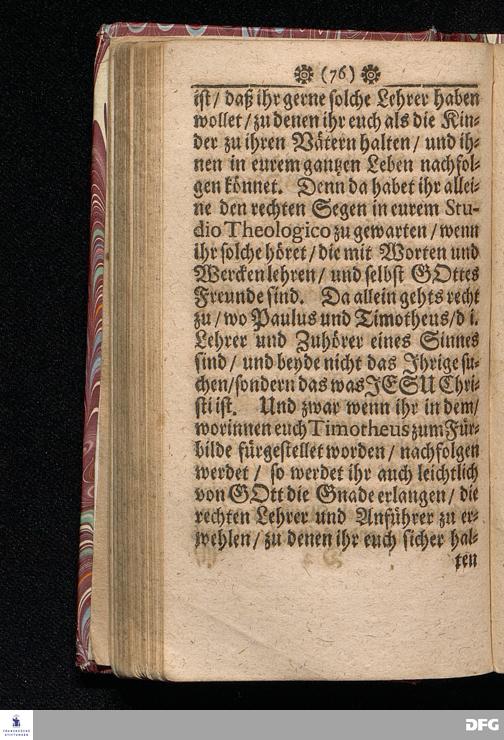 (76)
ist / daß ihr gerne solche Lehrer haben
wollet / zu denen ihr euch als die Kin-
der zu ihren Vätern halten / und ih-
nen in eurem gantzen Leben nachfol-
gen könnet. Denn da habet ihr allei-
ne den rechten Segen in eurem Stu-
dio Theologico zu gewarten / wenn
ihr solche höret / die mit Worten und
Wercken lehren / und selbst GOttes
Freunde sind. Da allein gehts recht
zu / wo Paulus und Timotheus / d i.
Lehrer und Zuhörer eines Sinnes
sind / und beyde nicht das Ihrige su-
chen / sondern das was JESU Chri-
sti ist. Und zwar wenn ihr in dem /
worinnen euch Timotheus zum Für-
bilde fürgestellet worden / nachfolgen
werdet / so werdet ihr auch leichtlich
von GOtt die Gnade erlangen / die
rechten Lehrer und Anführer zu er-
wehlen / zu denen ihr euch sicher hal-
ten
FRANCKESCHE
STIFTUNGEN
DFG